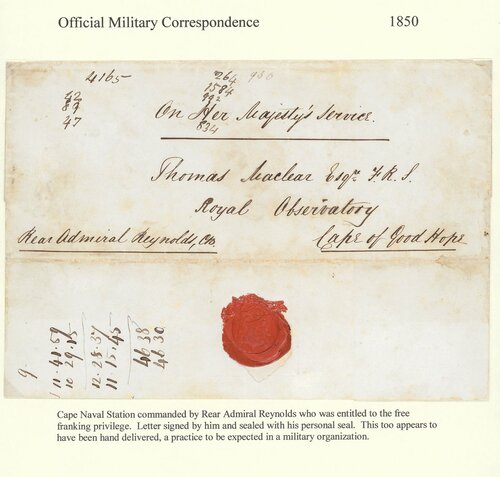 Official Military Correspondence 1850
4165
264 960
1584
992
834
42
87
47
On Her Majesty's Service.
Thomas Maclear Esqr. F.R.S.
Royal Observatory
Cape of Good Hope
Rear Admiral Reynolds, CB.
9
11.41.59
10.29.15
12.28.37
11.15.45
46 38
46 30
Cape Naval Station commanded by Rear Admiral Reynolds who was entitled to the free
franking privilege. Letter signed by him and sealed with his personal seal. This too appears to
have been hand delivered, a practice to be expected in a military organization.